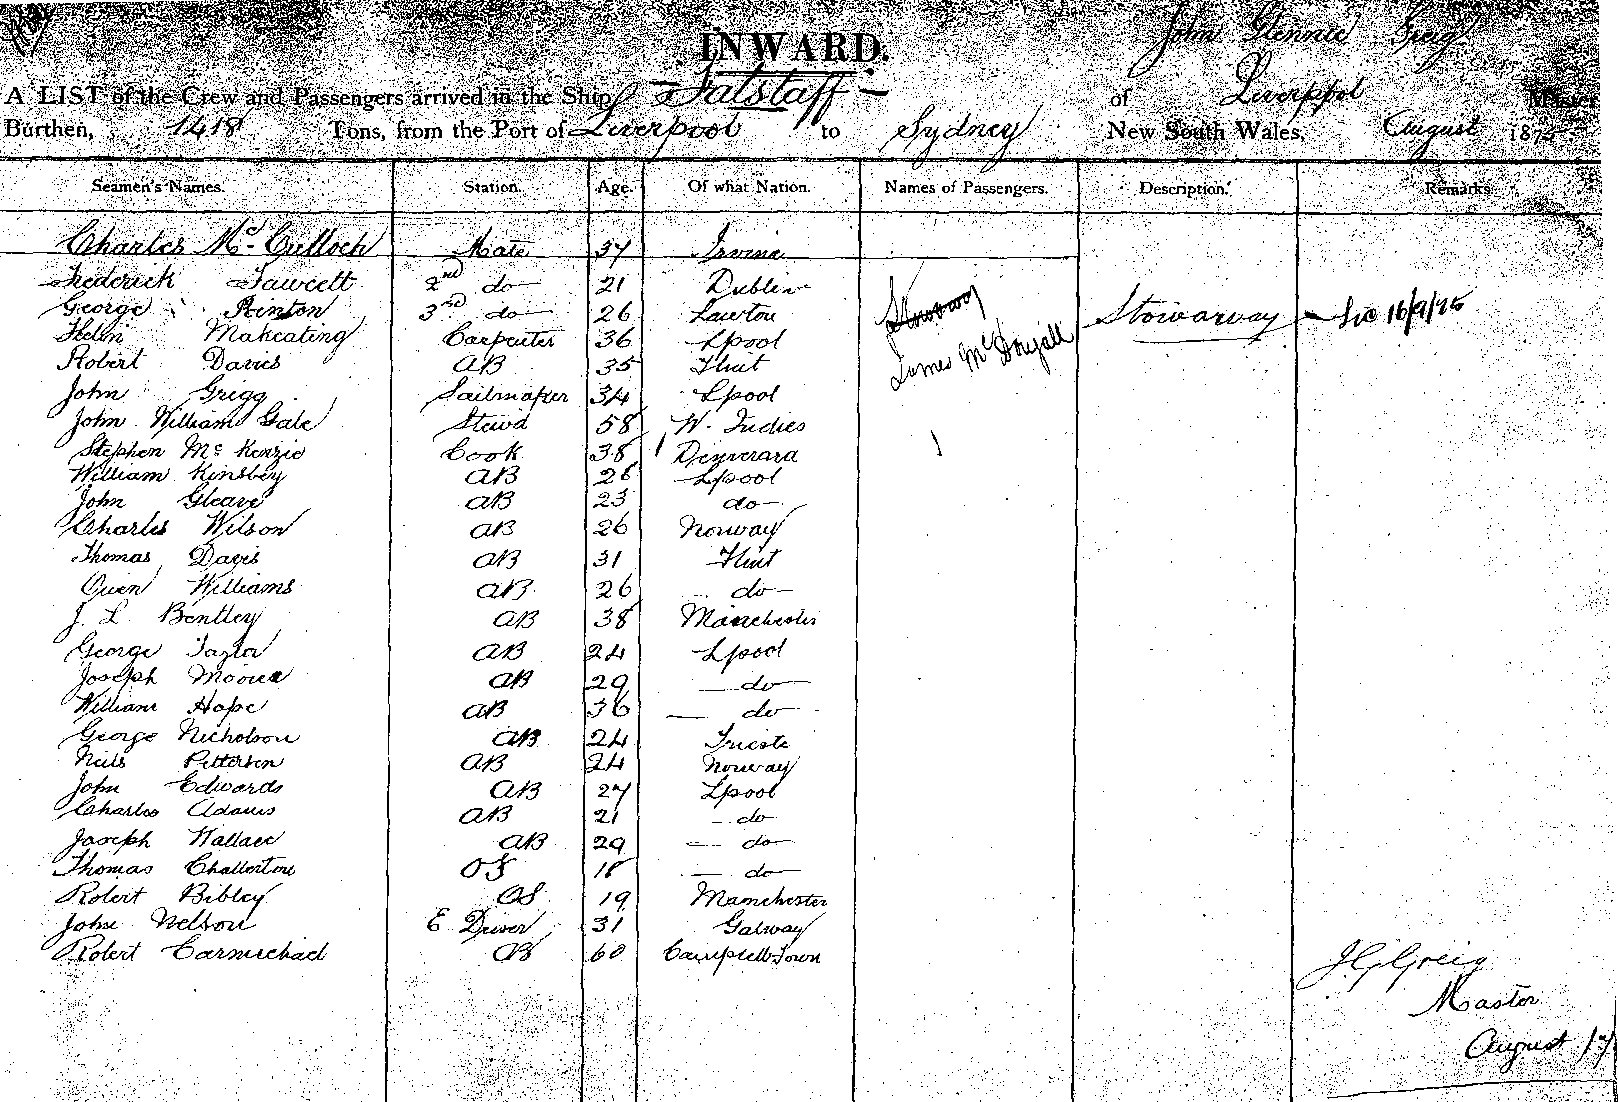 INWARD.
John Glennie Greig
A LIST of the Crew and Passengers arrived in the Ship Falstaff of Liverpool Master
Burthen, 1418 Tons, from the Port of Liverpool to Sydney New South Wales, August 187
Seamen's Names. Station. Age. Of what Nation. Names of Passengers. Description. Remarks
Charles Mc Culloch Mate 37 Irvine
Frederick Fawcett 2nd do 21 Dublin
George Rinton 3rd do 26 Lawton
Stowaway Stowarway
Makeating Carpenter 36 Lpool
James McDougall
Robert Davies AB 35 Flint
John Grigg Sailmaker 34 Lpool
John William Gale Stewd 58 W. Indies
Stephen Mc Kenzie Cook 38 Demerara
William Kinsbey AB 26 Lpool
John Gleave AB 23 do
Charles Wilson AB 26 Norway
Thomas Davis AB 31 Flint
Owen Williams AB 26 do
J. L. Bentley AB 38 Manchester
George Taylor AB 24 Lpool
Joseph Moore AB 29 do
William Hope AB 36 do
George Nicholson AB 24 Trieste
Niels Pettersen AB 24 Norway
John Edwards AB 27 Lpool
Charles Adams AB 21 do
Joseph Wallace AB 29 do
Thomas Challerton OS 18 do
Robert Bibley OS 19 Manchester
John Nelson E Driver 31 Galway
Robert Carmichael AB 60 Campbell Town
J G Greig
Master
August 17